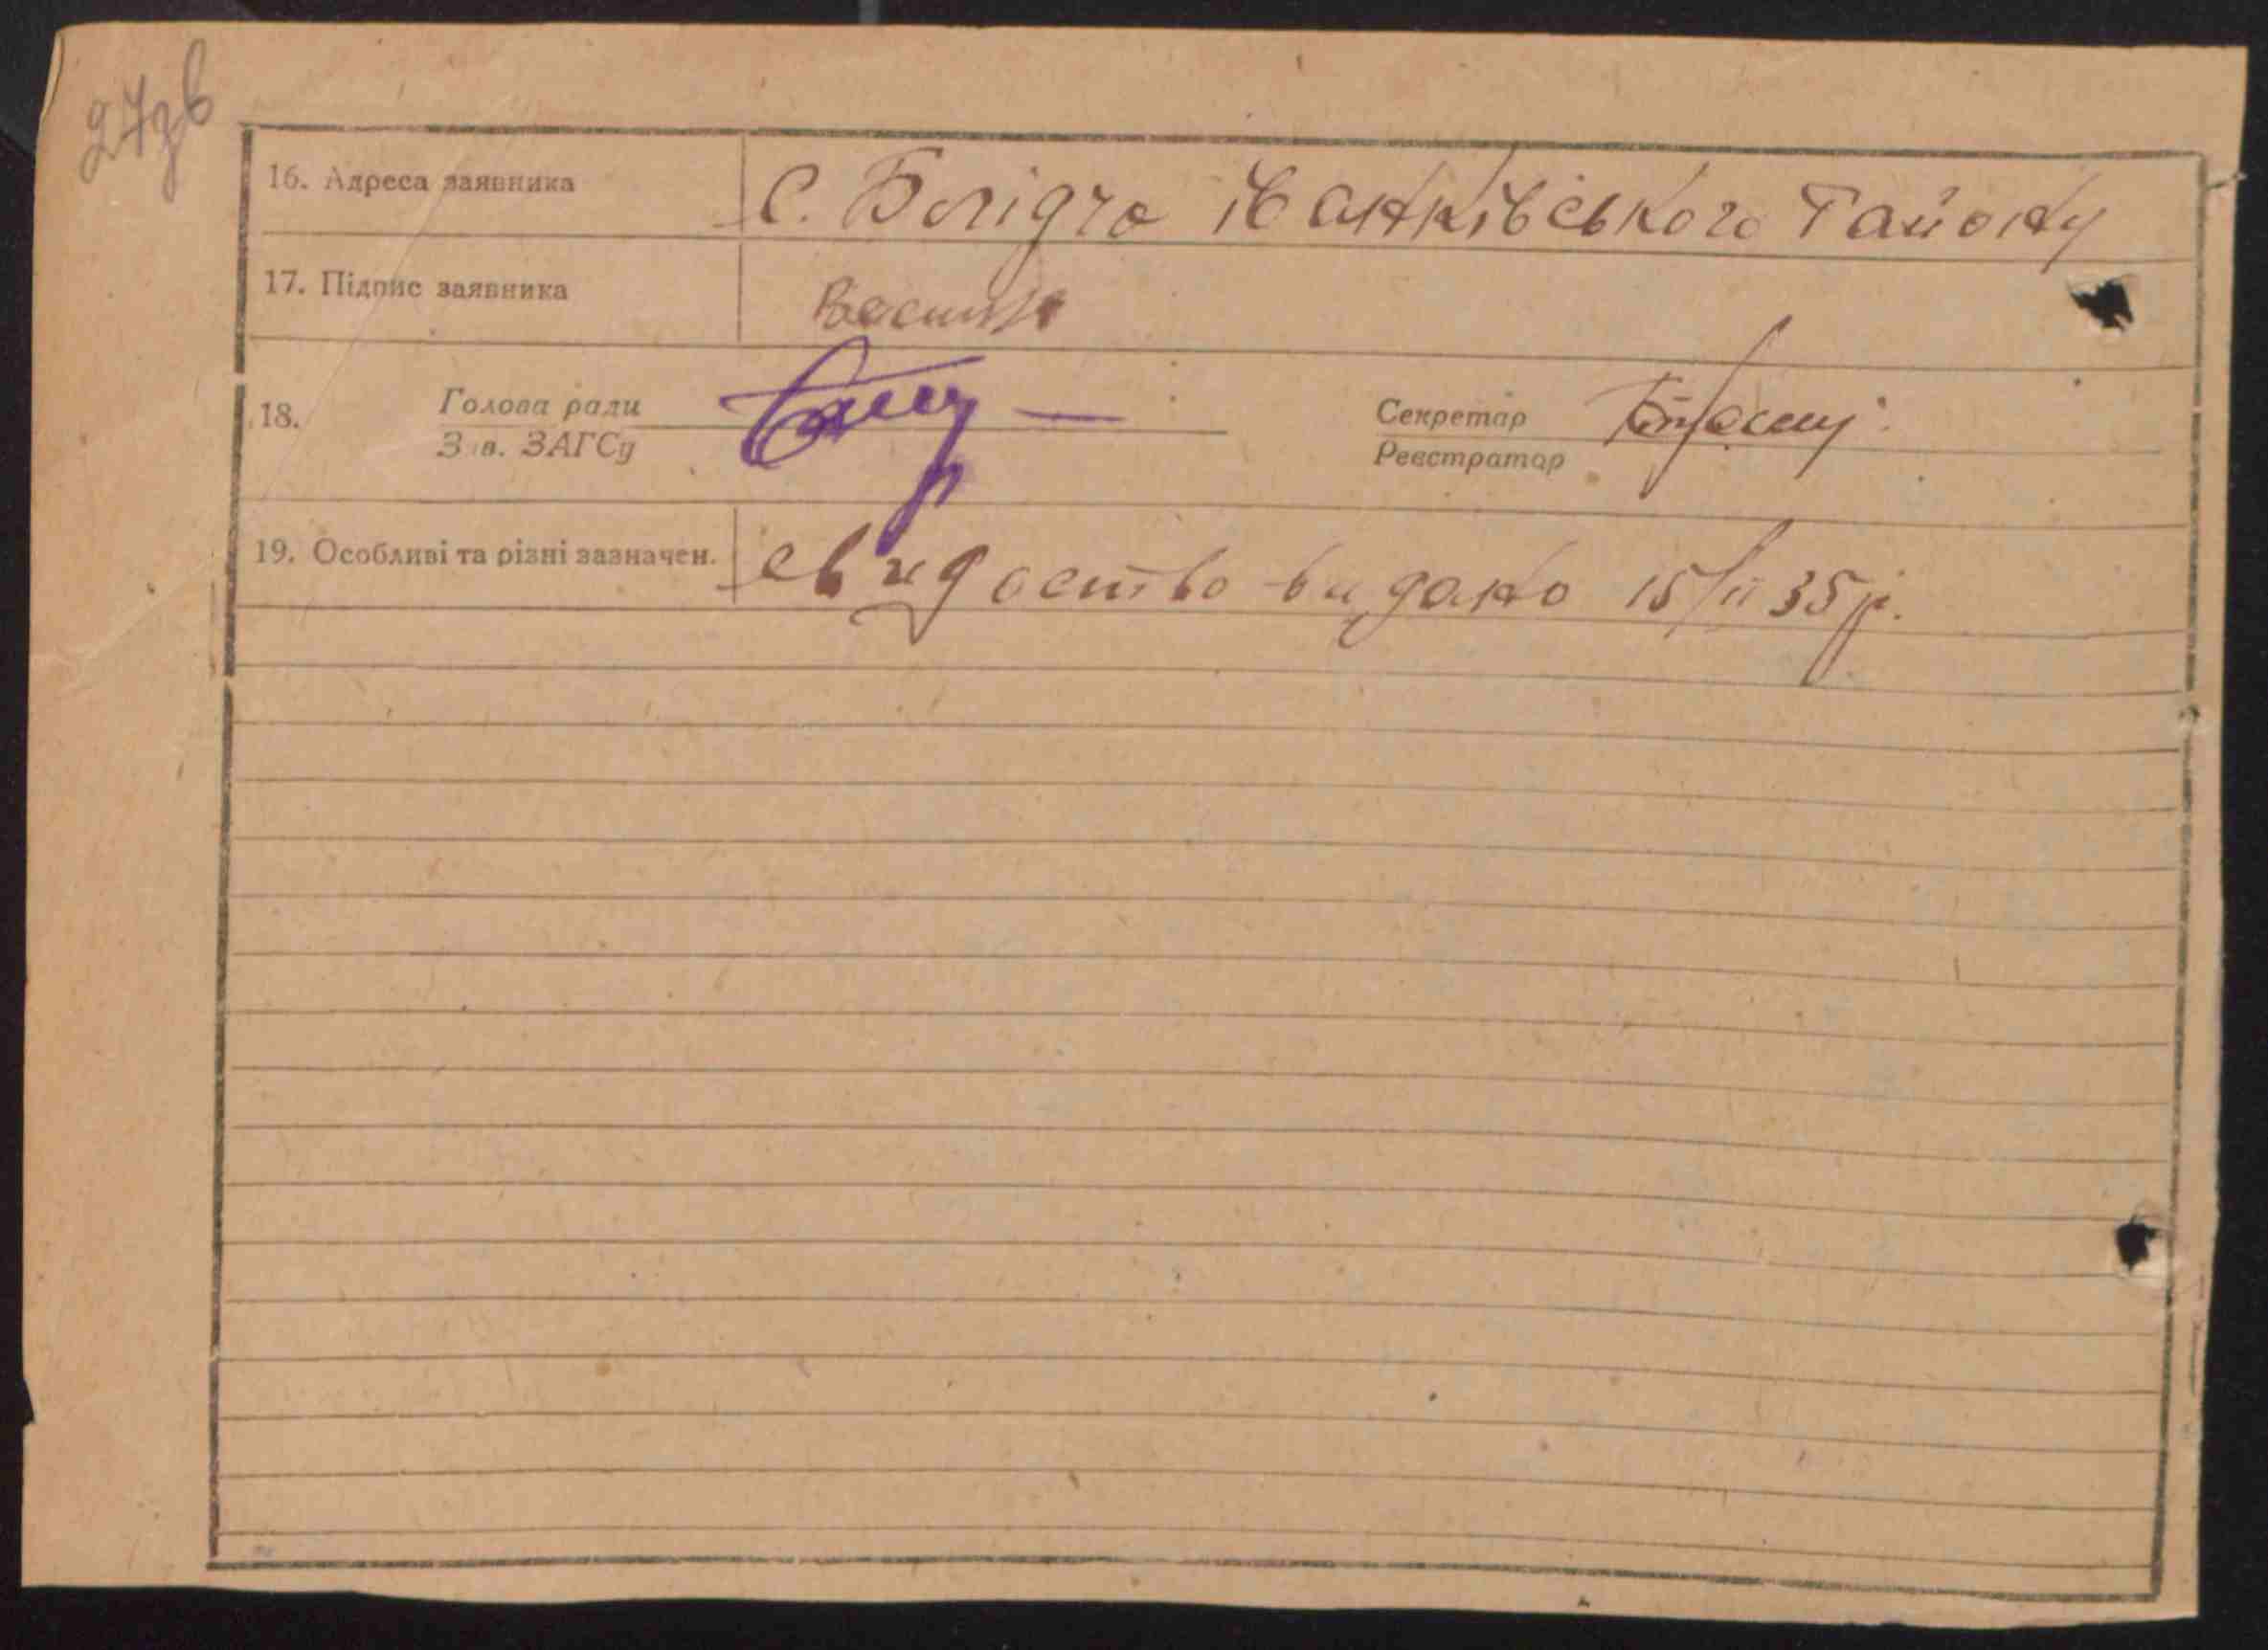 27зв
16. Адреса заявника С. Болідча іванківського району
17. Підпис заявника
18. Голова ради Секретар
Зав. ЗАГСу Реєстратор
19. Особливі та різні зазначен. свидоство видано 15/II 35 р.